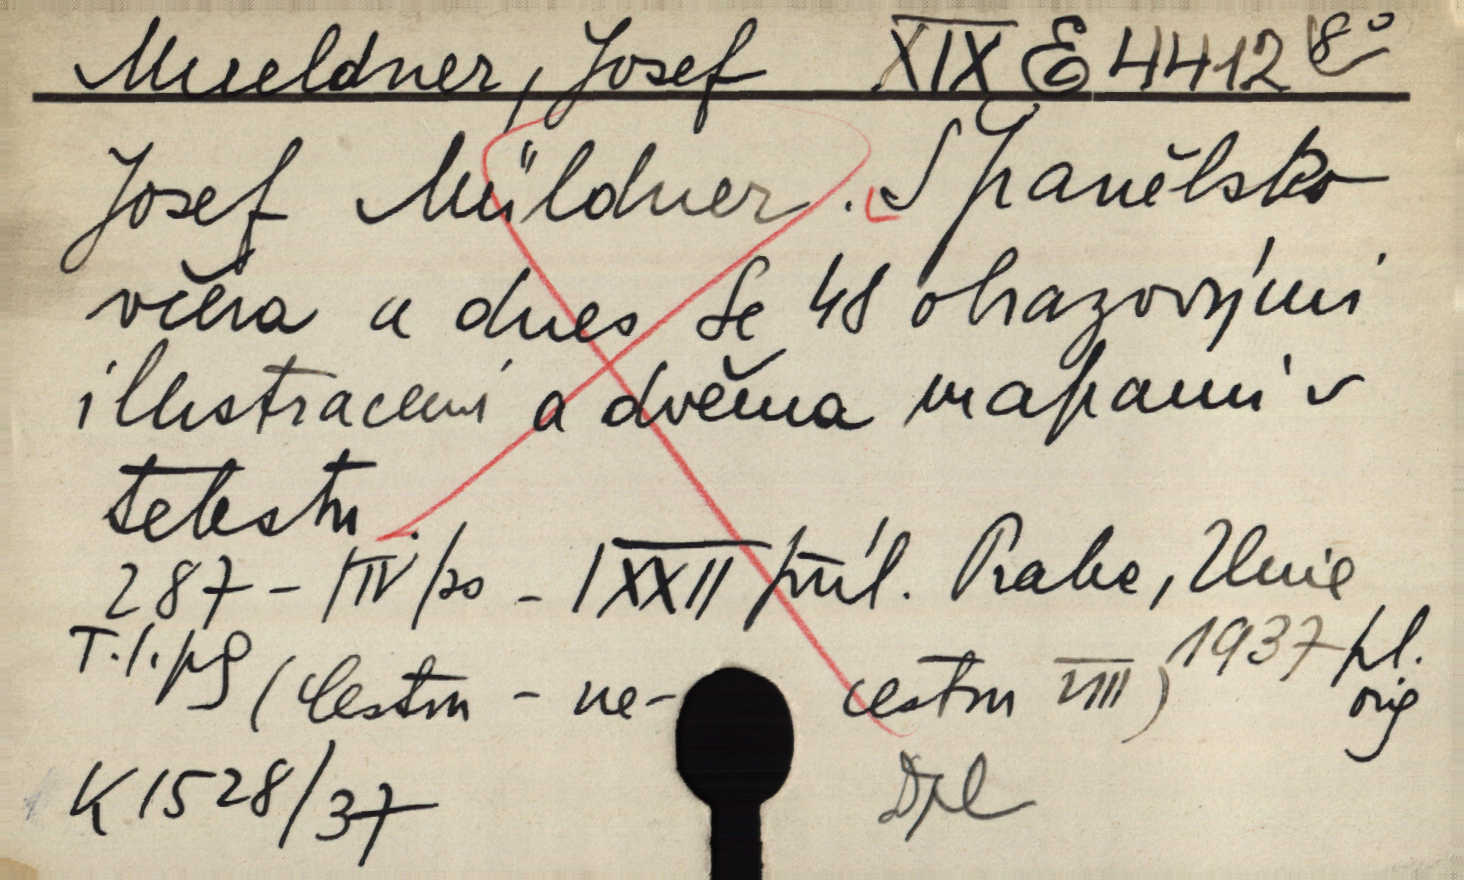 Mueldner, Josef XIX E 4412 8°
Josef Müldner. Španělsko
včera a dnes Se 48 obrazovými
illustracemi a dvěma mapami v
textu.
287 - |IV| - |XXII příl. Praha, Unie
T.1. 1937 pl.
(Cestou - ne- cestou VIII) orig
K 1528/37 Dpl